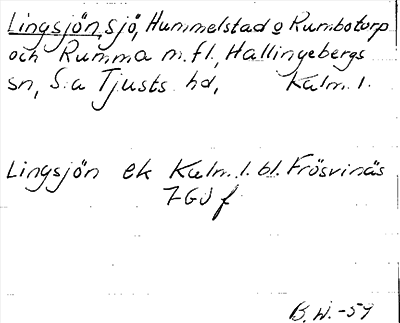 Lingsjön, sjö, Hummelstad o Rumbotorp
och Rumma m.fl., Hallingebergs
sn, S:a Tjusts hd, Kalm. l.
Lingsjön ek Kalm. l. bl. Frösvinäs
7GV f
B.W.-59